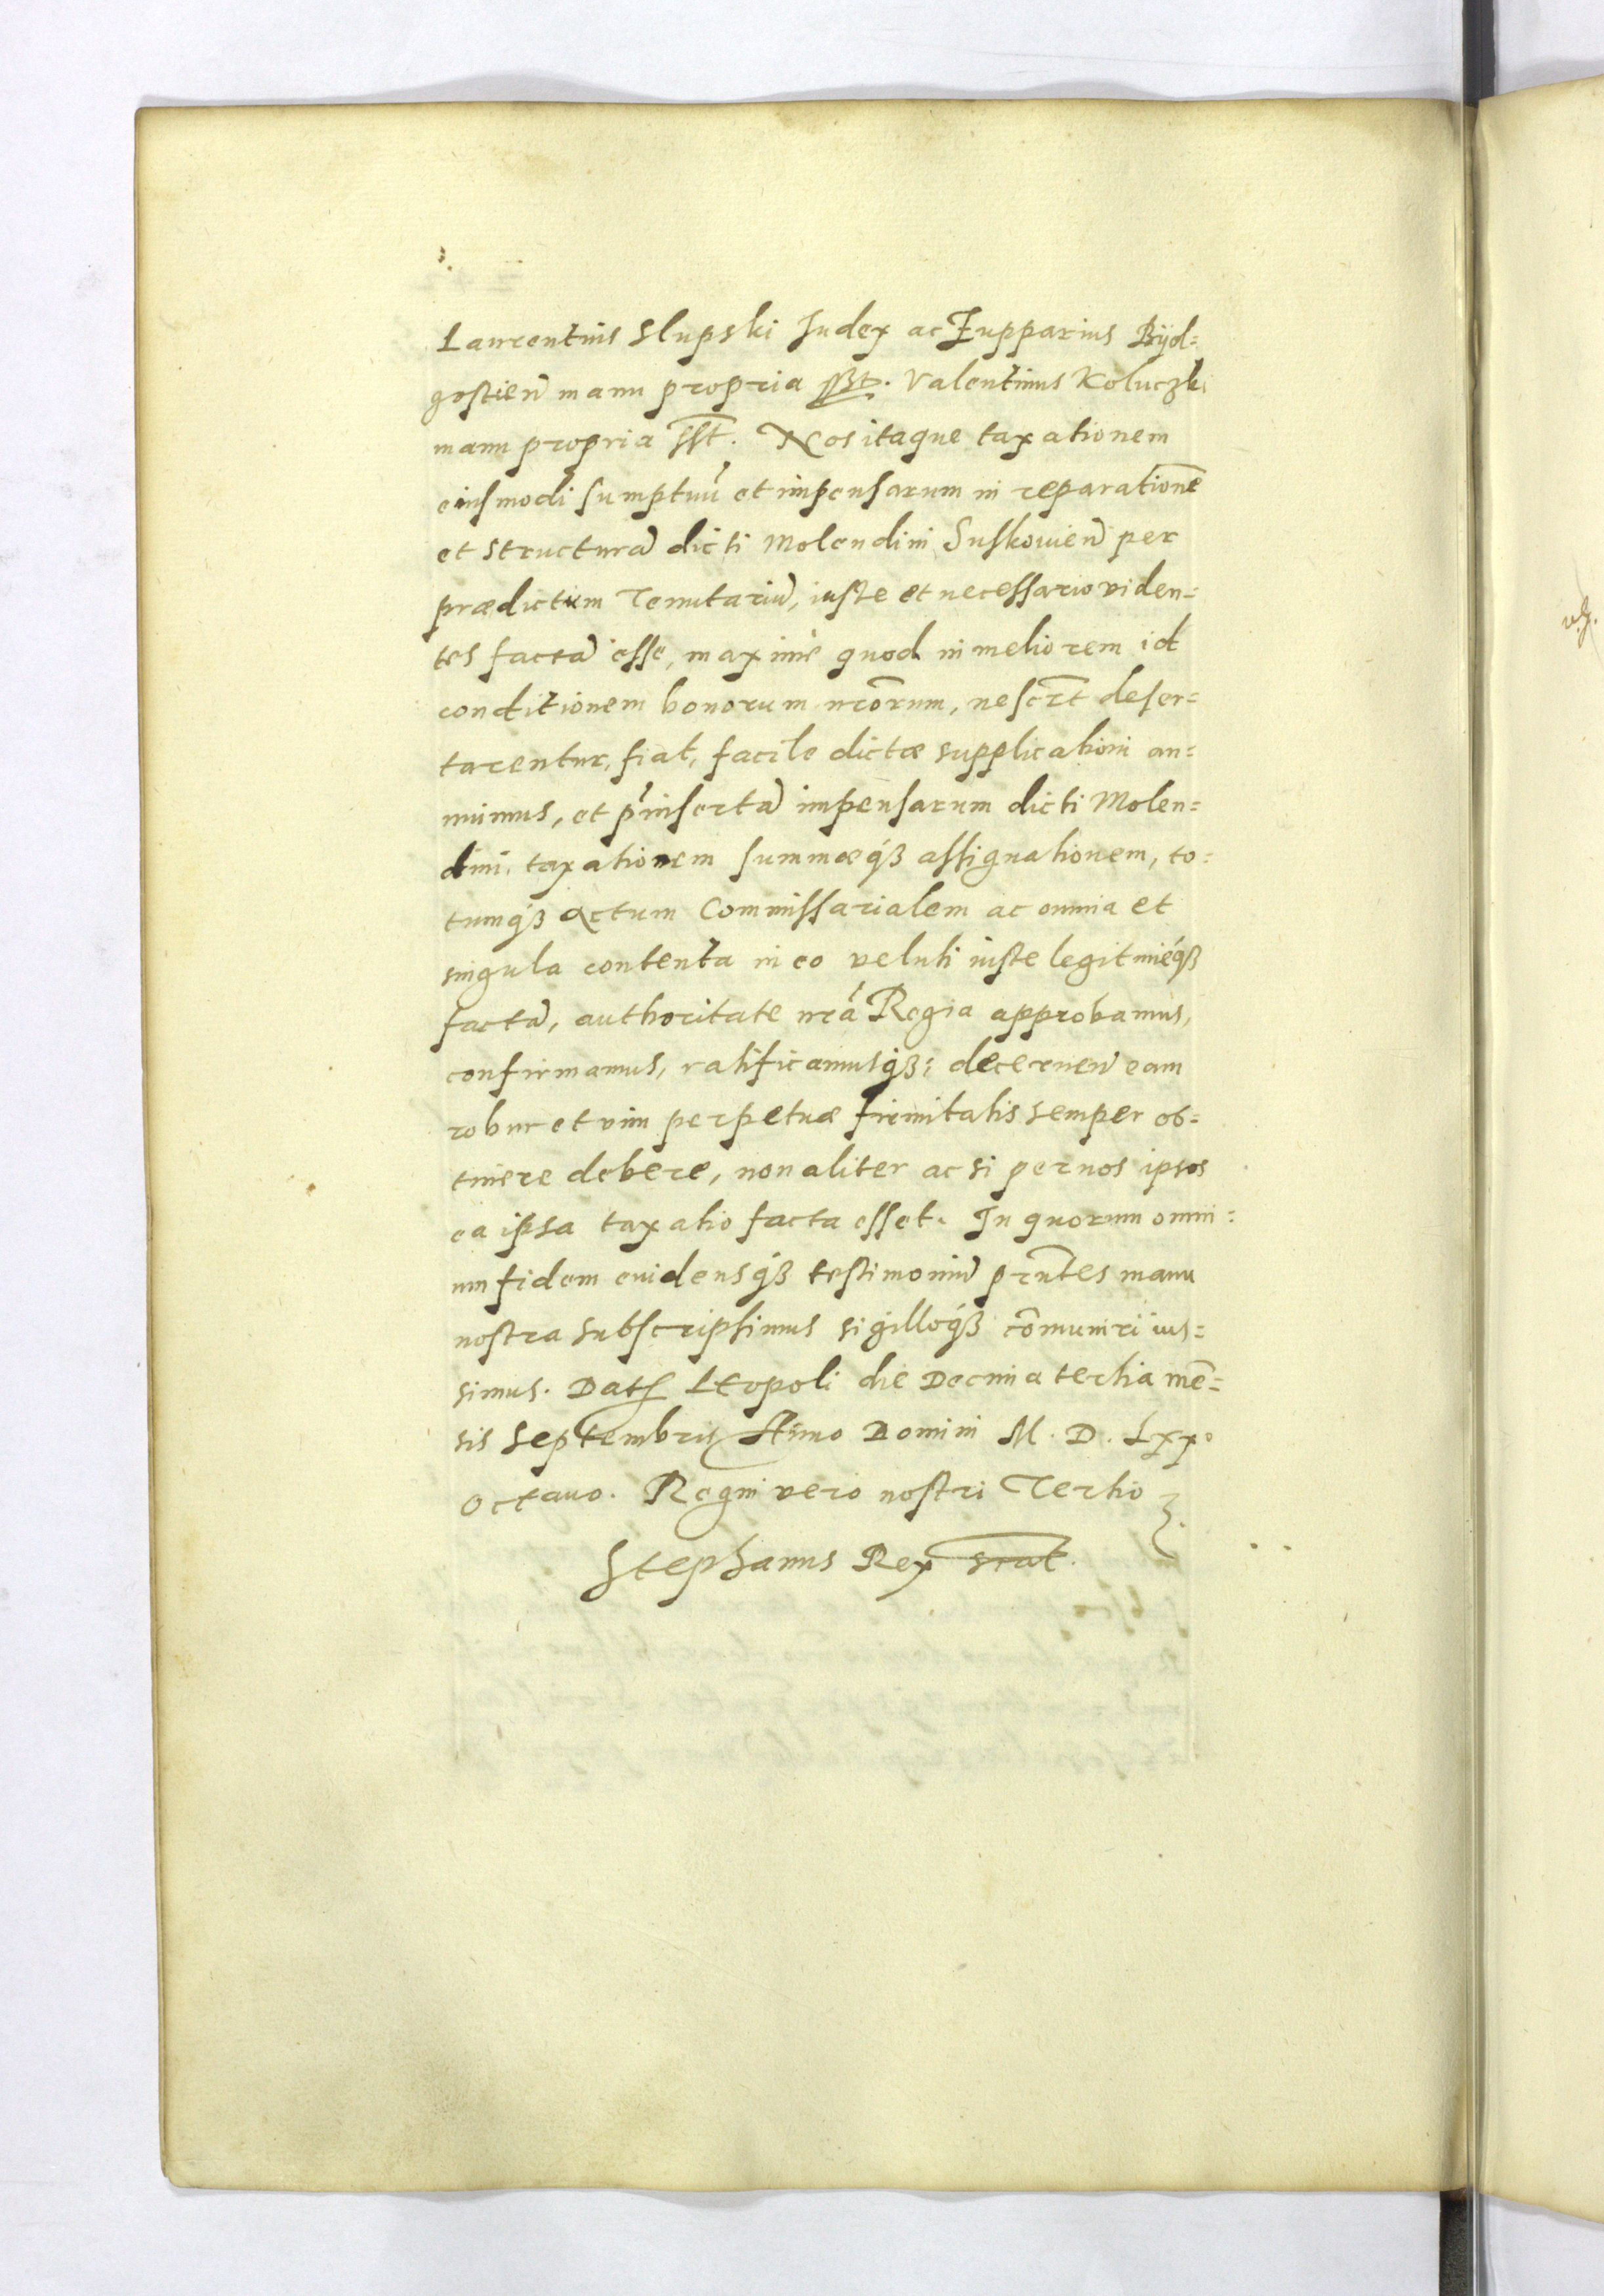 Laurentius Slupski Iudex ac Zupparius Bÿd=
gostień manu propria sßt. Valentinus Koluczki
manu propria sst. Nos itaque taxationem
eiusmodi sumptuū et impensarum in reparationē
et structurā dicti Molendini Suskouień per
prædictum Tenutariū, iuste et necessario viden=
tes factā esse, maximè quod in meliorem id
conditionem bonorum nr̄orum, ne scr̄t deser=
tarentur, fiat, facile dictæ supplicationi an=
nuimus, et p̄insertā impensarum dicti Molen=
dini, taxationem summæq́ꝫ assignationem, to=
tumq́ꝫ actum Commissarialem ac omnia et
singula contenta in eo veluti iuste legitimèq́ꝫ
factā, authoritate nr̄a Regia approbamus,
confirmamus, ratificamusq́ꝫ; decerneń eam
robur et vim perpetuæ firmitatis semper ob=
tinere debere, non aliter ac si per nos ipsos
ea ipsa taxatio facta esset. In quorum omni=
um fidem euidensq́ꝫ testimoniū pr̄ntes manu
nostra subscripsimus sigilloq́ꝫ cōmuniri ius=
simus. Dat Leopoli die Decima tertia mē=
sis Septembris Anno Domini M. D. Lxxo
Octauo. Regni vero nostri Tertio
Stephanus Rex scat.